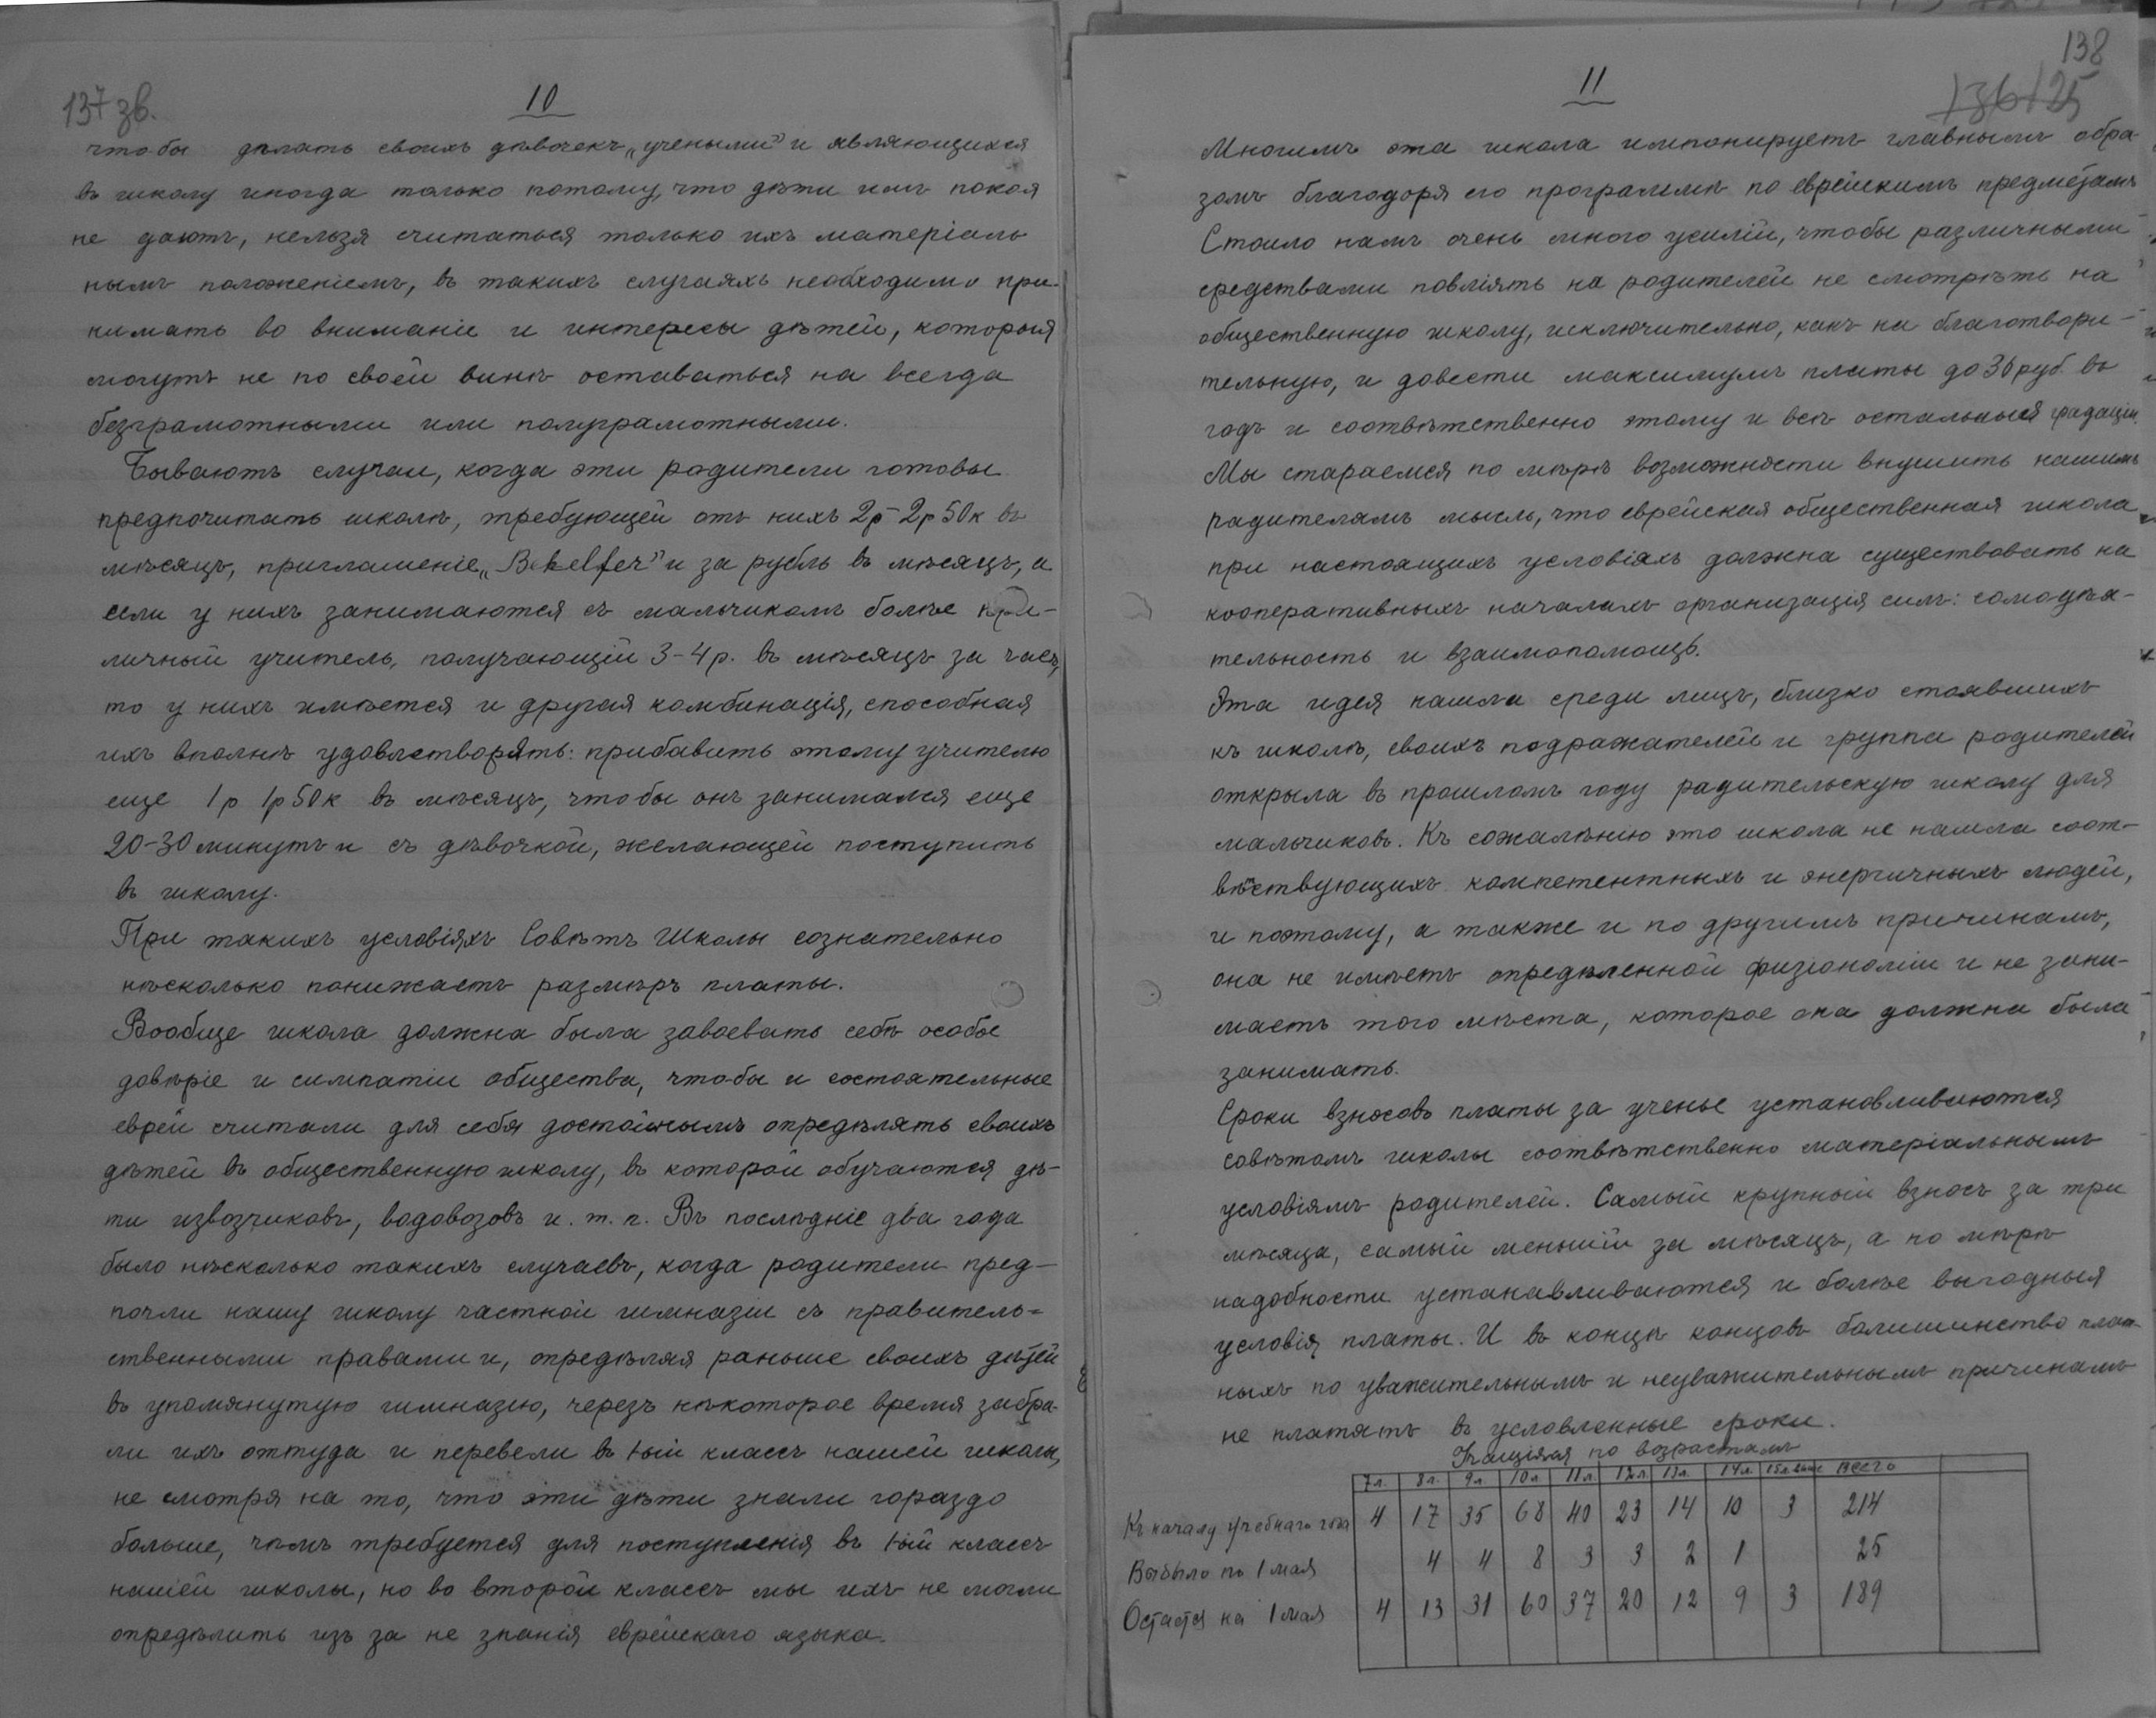 137 зв.
10
чтобы дѣлать своихъ дѣвочекъ „учеными" и являющихся
въ школу иногда только потому, что дѣти имъ покоя
не даютъ, нельзя считаться только ихъ матеріаль
нымъ положеніемъ, въ такихъ случаяхъ необходимо при-
нимать во вниманіе и интересы дѣтей, которыя
могутъ не по своей винѣ оставаться на всегда
безграмотными или полуграмотными.
Бываютъ случаи, когда эти родители готовы
предпочитать школѣ, требующей отъ нихъ 2р-2р 50к въ
мѣсяцъ, приглашеніе „Behelfer" и за рубль въ мѣсяцъ, а
если у нихъ занимаются съ мальчикомъ болѣе при-
личный учитель, получающій 3-4р. въ мѣсяцъ за часъ,
то у нихъ имѣется и другая комбинація, способная
ихъ вполнѣ удовлетворять: прибавить этому учителю
еще 1р 1р50к въ мѣсяцъ, чтобы онъ занимался еще
20-30 минутъ и съ дѣвочкой, желающей поступить
въ школу.
При такихъ условіяхъ Совѣтъ Школы сознательно
нѣсколько понижаетъ размѣръ платы.
Вообще школа должна была завоевать себѣ особое
довѣріе и симпатіи общества, чтобы и состоятельные
евреи считали для себя достойнымъ опредѣлять своихъ
дѣтей въ общественную школу, въ которой обучаются дѣ-
ти извозчиковъ, водовозовъ и. т. п. Въ послѣдніе два года
было нѣсколько такихъ случаевъ, когда родители пред-
почли нашу школу частной гимназіи съ правитель=
ственными правами и, опредѣляя раньше своихъ дѣтей
въ упомянутую гимназію, черезъ нѣкоторое время забра-
ли ихъ оттуда и перевели въ 1ый классъ нашей школы,
не смотря на то, что эти дѣти знали гораздо
больше, чѣмъ требуется для поступленія въ 1ый классъ
нашей школы, но во второй классъ мы ихъ не могли
опредѣлить изъ за не знанія еврейскаго языка.
138
136 125
11
Многимъ эта школа импонируетъ главнымъ обра-
зомъ благодоря его программѣ по еврейскимъ предметамъ
Стоило намъ очень много усилій, чтобы различными
средствами повліять на родителей не смотрѣть на
общественную школу, исключительно, какъ на благотвори-
тельную, и довести максимумъ платы до 36 руб. въ
годъ и соотвѣтственно этому и всѣ остальныя градаціи.
Мы стараемся по мѣрѣ возможности внушить нашимъ
родителямъ мысль, что еврейская общественная школа
при настоящихъ условіяхъ должна существовать на
кооперативныхъ началахъ организація силъ: самодѣя-
тельность и взаимопомощь.
Эта идея нашла среди лицъ, близко стоявшихъ
къ школѣ, своихъ подражателей и группа родителей
открыла въ прошломъ году родительскую школу для
мальчиковъ. Къ сожалѣнію это школа не нашла соот-
вѣствующихъ компетентныхъ и энергичныхъ людей,
и поэтому, а также и по другимъ причинамъ,
она не имѣетъ опредѣленной физіономіи и не зани-
маетъ того мѣста, которое она должна была
занимать.
Сроки взносовъ платы за ученье установливаются
совѣтомъ школы соотвѣтственно матеріальнымъ
условіямъ родителей. Самый крупный взносъ за три
мѣсяца, самый меньшій за мѣсяцъ, а по мѣрѣ
надобности устанавливаются и болѣе выгодныя
условія платы. И въ концѣ концовъ болишинство плат-
ныхъ по уважительнымъ и неуважительнымъ причинамъ
не платятъ въ условленные сроки.
Учащіяся по возрастамъ
7л. 8л. 9л. 10л. 11л. 12л. 13л. 14л. 15л. Всего
Къ началу учебнаго года 4 17 35 68 40 23 14 10 3 214
Выбыло по 1 мая 4 4 8 3 3 2 1 25
Остается на 1 мая 4 13 31 60 37 20 12 9 3 189